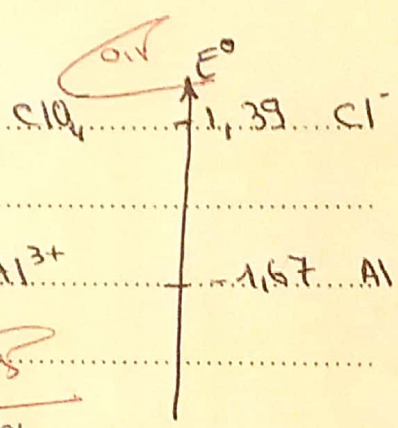 E°
ClO₄ 1,39 Cl⁻
Al³⁺ -1,67 Al